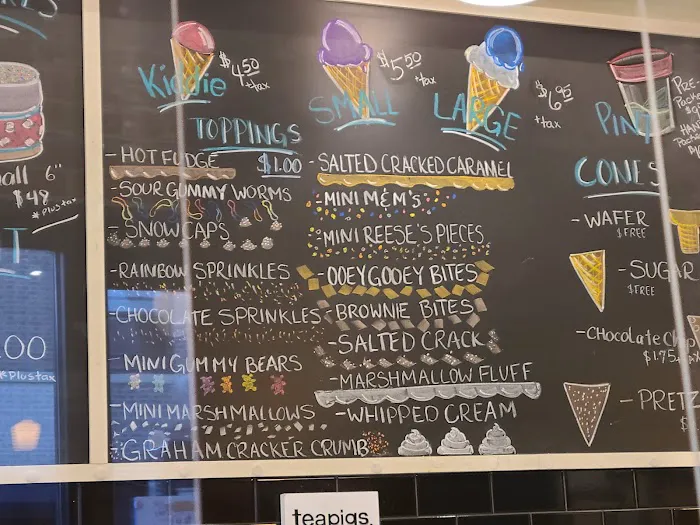 Kiddie
$4.50
+tax
SMALL
$5.50
+tax
LARGE
$6.95
+tax
TOPPINGS
$1.00
- HOT FUDGE
- SOUR GUMMY WORMS
- SNOWCAPS
- RAINBOW SPRINKLES
- CHOCOLATE SPRINKLES
- MINI GUMMY BEARS
- MINI MARSHMALLOWS
- GRAHAM CRACKER CRUMB
- SALTED CRACKED CARAMEL
- MINI M&M's
- MINI REESE'S PIECES
- OOEY GOOEY BITES
- BROWNIE BITES
- SALTED CRACK
- MARSHMALLOW FLUFF
- WHIPPED CREAM
CONES
- WAFER
$FREE
- SUGAR
$FREE
- CHOCOLATE Chip
$1.75
- PRETZ
6"
$48
*Plus tax
.00
*Plus tax
teapigs.